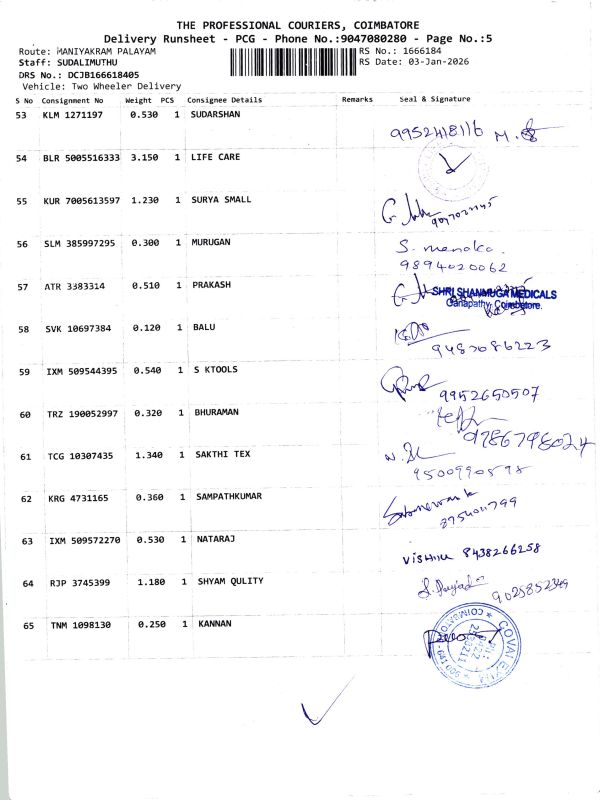 THE PROFESSIONAL COURIERS, COIMBATORE
Delivery Runsheet - PCG - Phone No.:9047080280 - Page No.:5
Route: MANIYAKRAM PALAYAM RS No.: 1666184
Staff: SUDALIMUTHU RS Date: 03-Jan-2026
DRS No.: DCJB166618405
Vehicle: Two Wheeler Delivery
S No Consignment No Weight PCS Consignee Details Remarks Seal & Signature
53 KLM 1271197 0.530 1 SUDARSHAN
9952418116 M.
54 BLR 5005516333 3.150 1 LIFE CARE
55 KUR 7005613597 1.230 1 SURYA SMALL
56 SLM 385997295 0.300 1 MURUGAN S. menaka.
9894020062
57 ATR 3383314 0.510 1 PRAKASH
SHRI SHANMUGA MEDICALS
Ganapathy, Coimbatore.
58 SVK 10697384 0.120 1 BALU
9487086223
59 IXM 509544395 0.540 1 S KTOOLS
9952650507
60 TRZ 190052997 0.320 1 BHURAMAN
9786798024
61 TCG 10307435 1.340 1 SAKTHI TEX
9500990598
62 KRG 4731165 0.360 1 SAMPATHKUMAR
63 IXM 509572270 0.530 1 NATARAJ
VISHNU 8438266258
64 RJP 3745399 1.180 1 SHYAM QULITY
9025852369
65 TNM 1098130 0.250 1 KANNAN